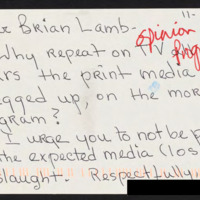 11-
opinion
Brian Lamb-
Why repeat on TV
ars the print media
gged up, on the mor
gram?
I urge you to not be p
the expected media (los
slaught. Respectfully,